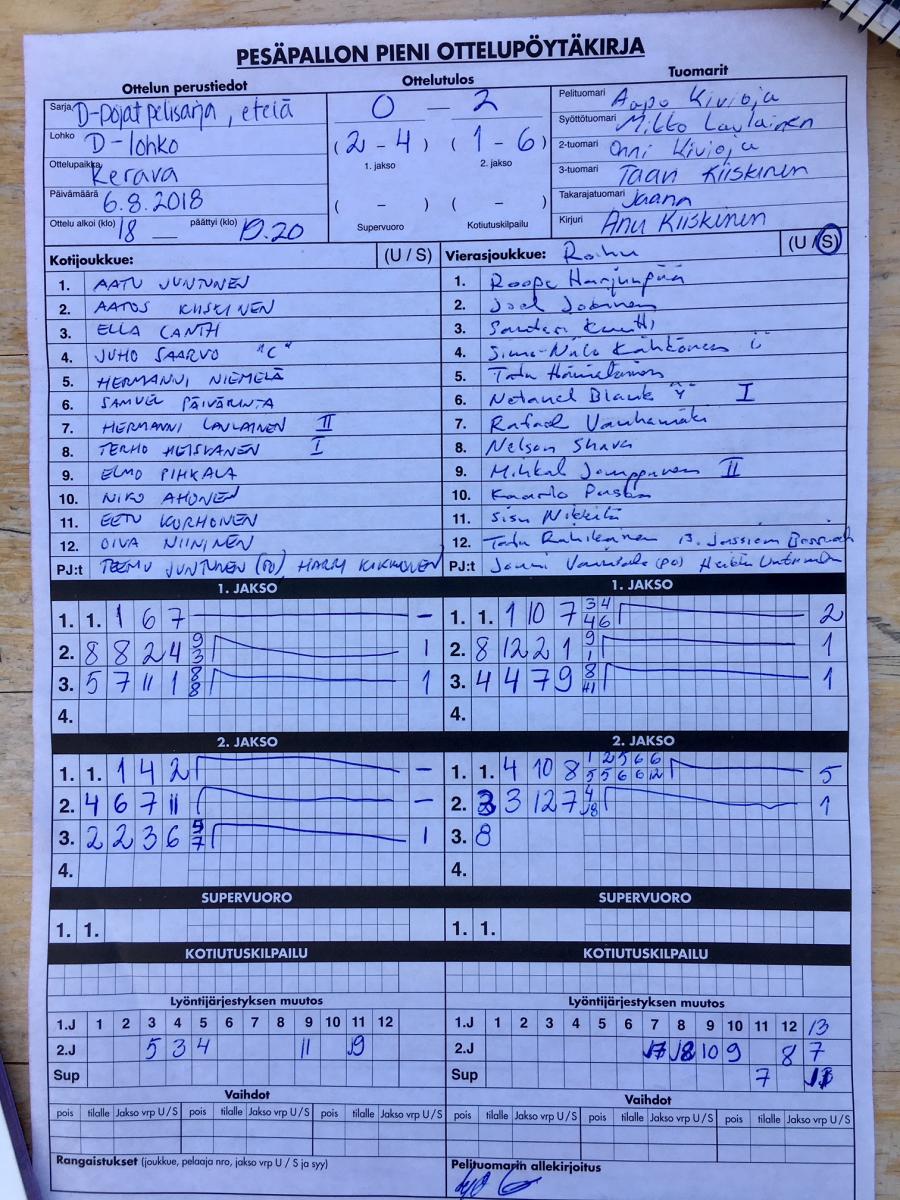 PESÄPALLON PIENI OTTELUPÖYTÄKIRJA
Ottelun perustiedot
Sarja D-pojat pelisarja, etelä
Lohko D-lohko
Ottelupaikka Kerava
Päivämäärä 6.8.2018
Ottelu alkoi (klo) 18 — päättyi (klo) 19.20
Ottelutulos
0 — 2
(2 - 4) (1 - 6)
1. jakso 2. jakso
( - ) ( - )
Supervuoro Kotiutuskilpailu
Tuomarit
Pelituomari Aapo Kivioja
Syöttötuomari Mikko Laulainen
2-tuomari Onni Kivioja
3-tuomari Taan Kiiskinen
Takarajatuomari Jaana
Kirjuri Anu Kiiskinen
Kotijoukkue: (U / S)
1. AATU JUNTUNEN
2. AATOS KIISKINEN
3. ELLA CANTH
4. JUHO SAARVO "C"
5. HERMANNI NIEMELÄ
6. SAMUEL PÄIVÄRINTA
7. HERMANNI LAULAINEN II
8. TERHO HEISKANEN I
9. ELMO PIHKALA
10. NIKO AHONEN
11. EETU KORHONEN
12. OIVA NIININEN
PJ:t TEEMU JUNTUNEN (PJ) HARRI KUKKONEN
Vierasjoukkue: Roihu (U / S)
1. Roope Harjunpää
2. Joel
3.
4. Simo-Niilo Kähkönen
5. Tatu
6. Natanel Blank I
7. Rafael Vanhamäki
8. Nelson Shava
9. II
10. Kaarlo
11. Sisu Nikkilä
12. Tatu 13.
PJ:t (PJ)
1. JAKSO
1. 1. 1 6 7 —
2. 8 8 2 4 9 3 1
3. 5 7 11 1 8 8 1
4.
1. JAKSO
1. 1. 1 10 7 3 4 4 6 2
2. 8 12 2 1 9 1 1
3. 4 4 7 9 8 11 1
4.
2. JAKSO
1. 1. 1 4 2 —
2. 4 6 7 11 —
3. 2 2 3 6 5 7 1
4.
2. JAKSO
1. 1. 4 10 8 1 2 5 6 6 5 5 6 6 12 5
2. 3 3 12 7 4 8 1
3. 8
4.
SUPERVUORO
1. 1.
SUPERVUORO
1. 1.
KOTIUTUSKILPAILU
KOTIUTUSKILPAILU
Lyöntijärjestyksen muutos
1.J 1 2 3 4 5 6 7 8 9 10 11 12
2.J 5 3 4 11 9
Sup
Lyöntijärjestyksen muutos
1.J 1 2 3 4 5 6 7 8 9 10 11 12 13
2.J 10 9 8 7
Sup 7
Vaihdot
pois tilalle Jakso vrp U / S pois tilalle Jakso vrp U / S pois tilalle Jakso vrp U / S
Vaihdot
pois tilalle Jakso vrp U / S pois tilalle Jakso vrp U / S pois tilalle Jakso vrp U / S
Rangaistukset (joukkue, pelaaja nro, jakso vrp U / S ja syy)
Pelituomarin allekirjoitus